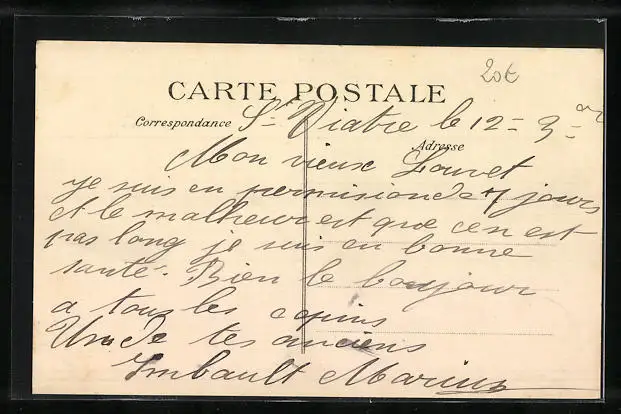 20€
CARTE POSTALE
Correspondance
St Viatre le 12 = 3 =
Adresse
Mon vieux Louvet
je suis en permission de 7 jours
et le malheur est que cen est
pas long je suis en bonne
santé. Bien le bonjour
a tous les copins
Un de tes anciens
Imbault Marius